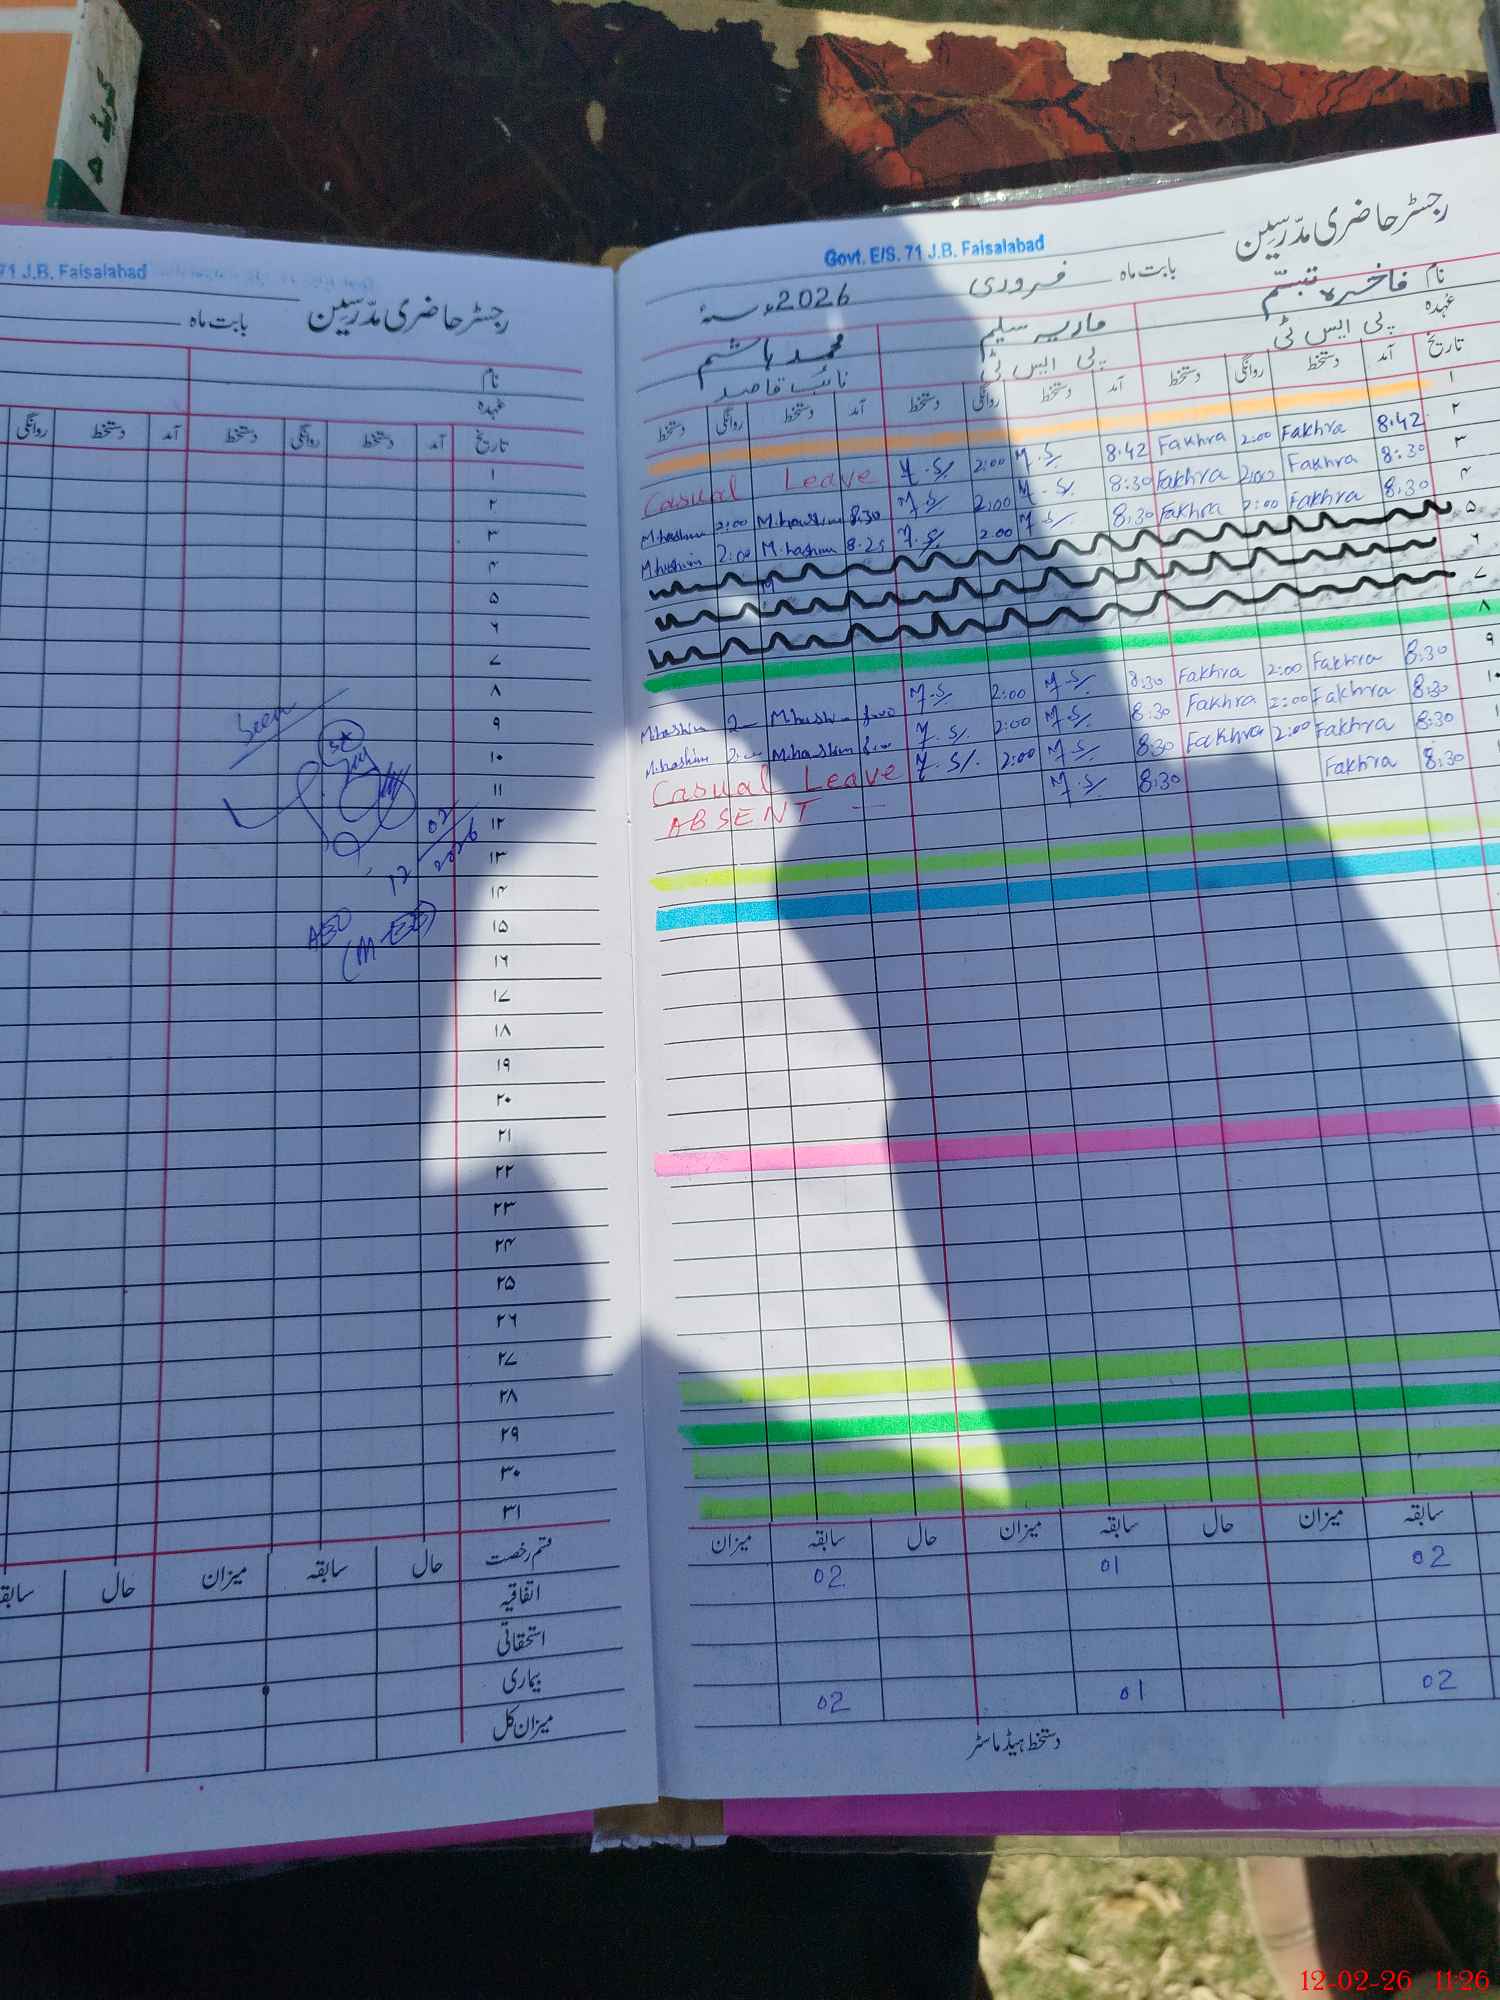 گریڈ ۵
71 J.B. Faisalabad
رجسٹر حاضری مدّرسین
بابت ماہ
نام
عہدہ
روانگی دستخط آمد دستخط روانگی دستخط آمد تاریخ
۱
۲
۳
۴
۵
۶
۷
۸
۹
۱۰
۱۱
۱۲
۱۳
۱۴
۱۵
۱۶
۱۷
۱۸
۱۹
۲۰
۲۱
۲۲
۲۳
۲۴
۲۵
۲۶
۲۷
۲۸
۲۹
۳۰
۳۱
Seen
12
02
2026
AEO
قسم رخصت حال سابقہ میزان حال سابقہ
اتفاقیہ
استحقاقی
بیماری
میزان کل
Govt. E/S. 71 J.B. Faisalabad
رجسٹر حاضری مدّرسین
بابت ماہ فروری 2026ء سنۂ
نام فاخرہ تبسّم ماریہ سلیم محمد ہاشم
عہدہ پی ایس ٹی پی ایس ٹی نائب قاصد
تاریخ آمد دستخط روانگی دستخط آمد دستخط روانگی دستخط آمد دستخط روانگی دستخط
۱
Casual Leave M.S/ 2:00 M.S/ 8:42 Fakhra 2:00 Fakhra 8:42 ۲
M.hashim 2:00 M.hashim 8:30 M.S/ 2:00 M.S/ 8:30 Fakhra 2:00 Fakhra 8:30 ۳
M.hashim 2:00 M.hashim 8:25 M.S/ 2:00 M.S/ 8:30 Fakhra 2:00 Fakhra 8:30 ۴
۵
۶
۷
۸
M.hashim 2 M.hashim 8:00 M.S/ 2:00 M.S/ 8:30 Fakhra 2:00 Fakhra 8:30 ۹
M.hashim M.hashim M.S/ 2:00 M.S/ 8:30 Fakhra 2:00 Fakhra 8:30 ۱۰
Casual Leave M.S/ 2:00 M.S/ 8:30 Fakhra 2:00 Fakhra 8:30
ABSENT M.S/ 8:30 Fakhra 8:30
سابقہ میزان حال سابقہ میزان حال سابقہ میزان
02 01 02
02 01 02
دستخط ہیڈ ماسٹر
12-02-26 11:26